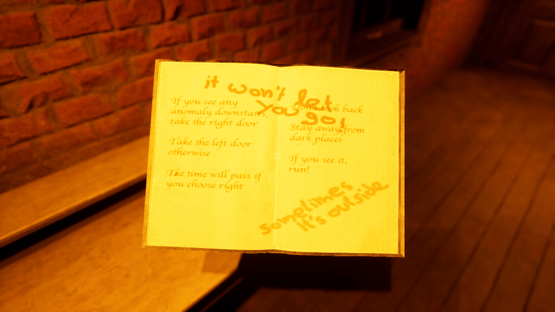 it won't let
you go!
If you see any
anomaly downstairs,
take the right door
Take the left door
otherwise
The time will pass if
you choose right
look back
Stay away from
dark places
If you see it,
run!
sometimes
it's outside